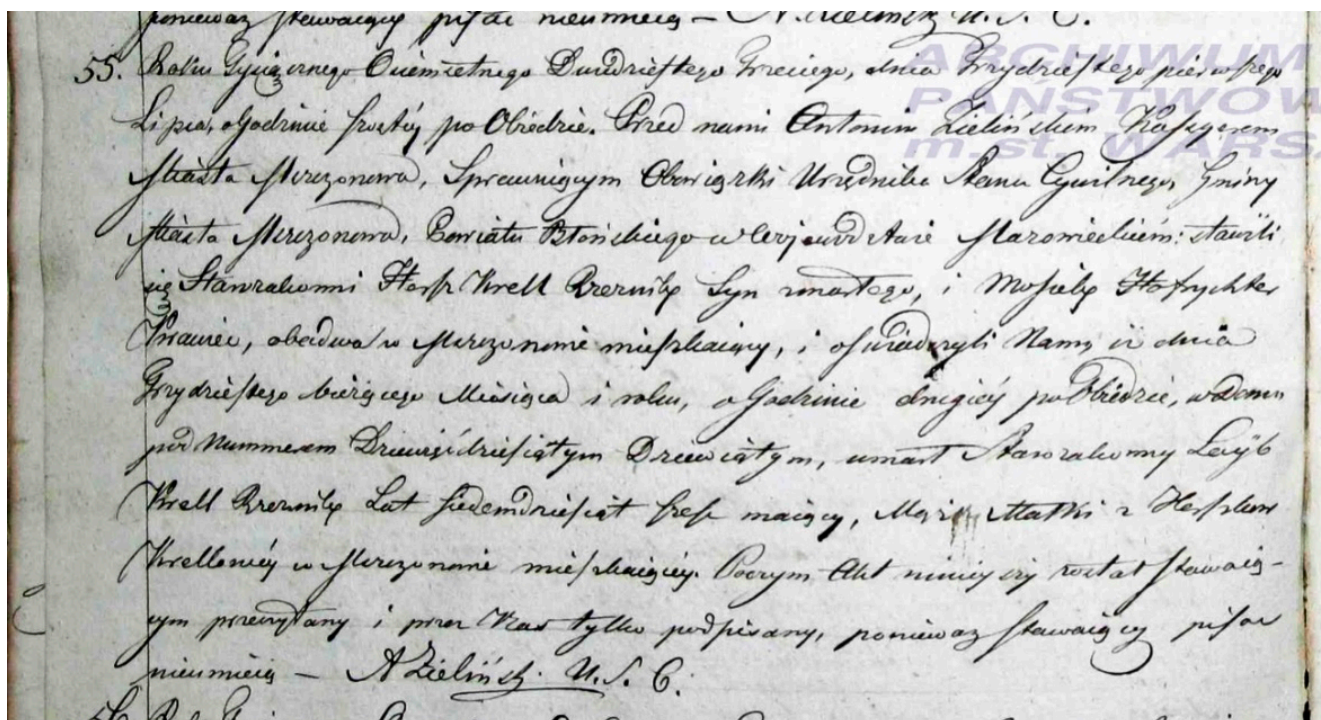 ponieważ stawaiący pisać nieumieią – A. Zieliński U. S. C.
ARCHIWUM
PAŃSTWOW
m.st. WARSZ
55. Roku Tysiącznego Ośiemsetnego Dwudziestego trzeciego, dnia Trzydziestego pierwszego
Lipca, o Godzinie szóstéy po Obiedzie. Przed nami Antonim Zielińskim Kassyerem
Miasta Mszczonowa, Sprawuiącym Obowiązki Urzędnika Stanu Cywilnego, Gminy
Miasta Mszczonowa, Powiatu Błońskiego w Woiewodztwie Mazowieckiém: stawili
się Starozakonni Krell Rzeznik Syn zmarłego, i
Krawiec, obadwa w Mszczonowie mieszkaiący, i oświadczyli Nam, iż dnia
Trzydziestego bieżącego Miesiąca i roku, o Godzinie drugiéy po Obiedzie, w Domu
pod Nummerem Dziewięćdziesiątym Dziewiątym, umarł Starozakonny Leyb
Krell Rzeznik Lat siedemdziesiąt sześć maiący, Mąż Matki
Krellowéy w Mszczonowie mieszkaiącéy. Poczym Akt ninieyszy został stawaią-
cym przeczytany i przez Nas tylko podpisany, ponieważ stawaiący pisać
nieumieią – A Zielińsk. U. S. C.